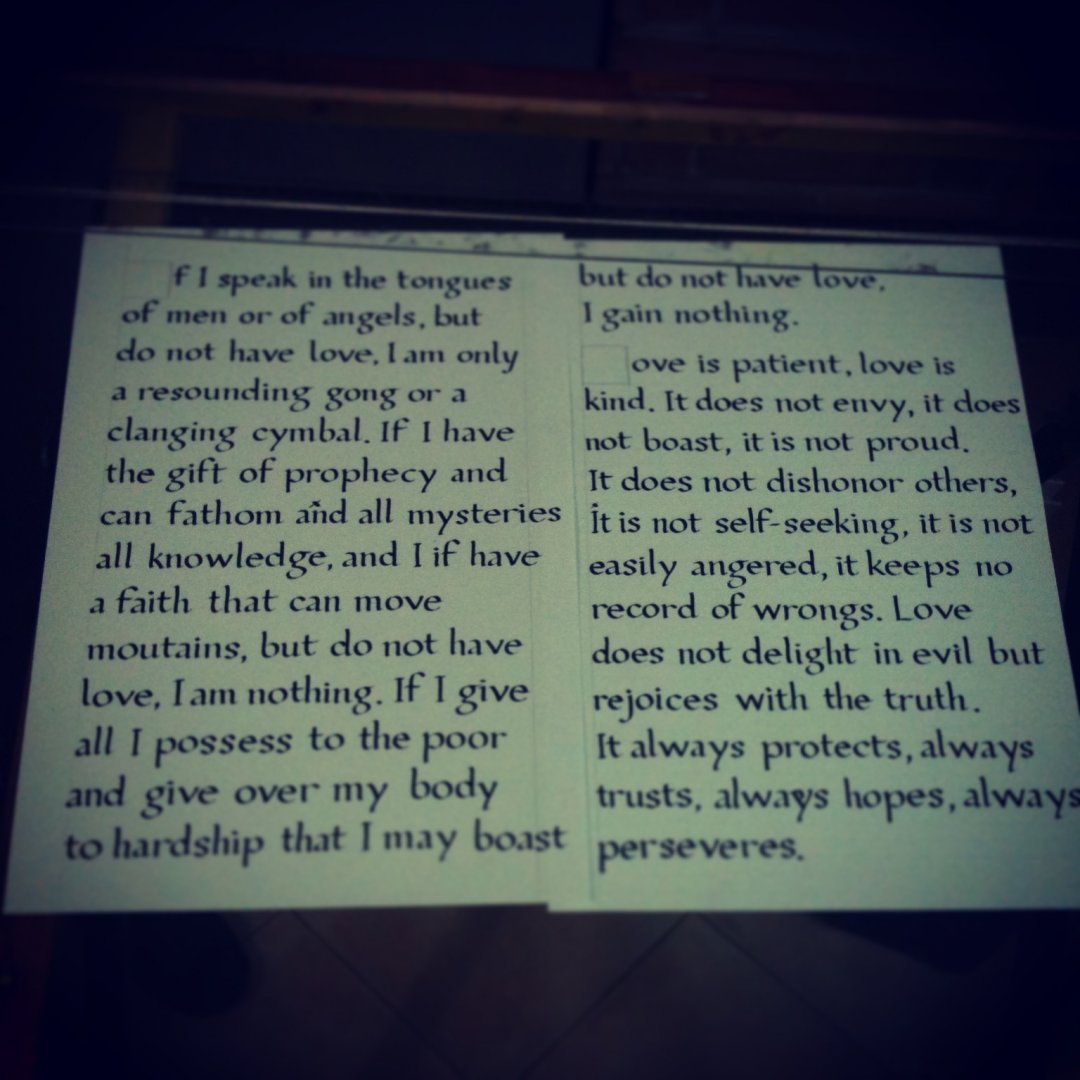 f I speak in the tongues
of men or of angels, but
do not have love, I am only
a resounding gong or a
clanging cymbal. If I have
the gift of prophecy and
can fathom and all mysteries
all knowledge, and I if have
a faith that can move
moutains, but do not have
love, I am nothing. If I give
all I possess to the poor
and give over my body
to hardship that I may boast
but do not have love,
I gain nothing.
ove is patient, love is
kind. It does not envy, it does
not boast, it is not proud.
It does not dishonor others,
it is not self-seeking, it is not
easily angered, it keeps no
record of wrongs. Love
does not delight in evil but
rejoices with the truth.
It always protects, always
trusts, always hopes, always
perseveres.